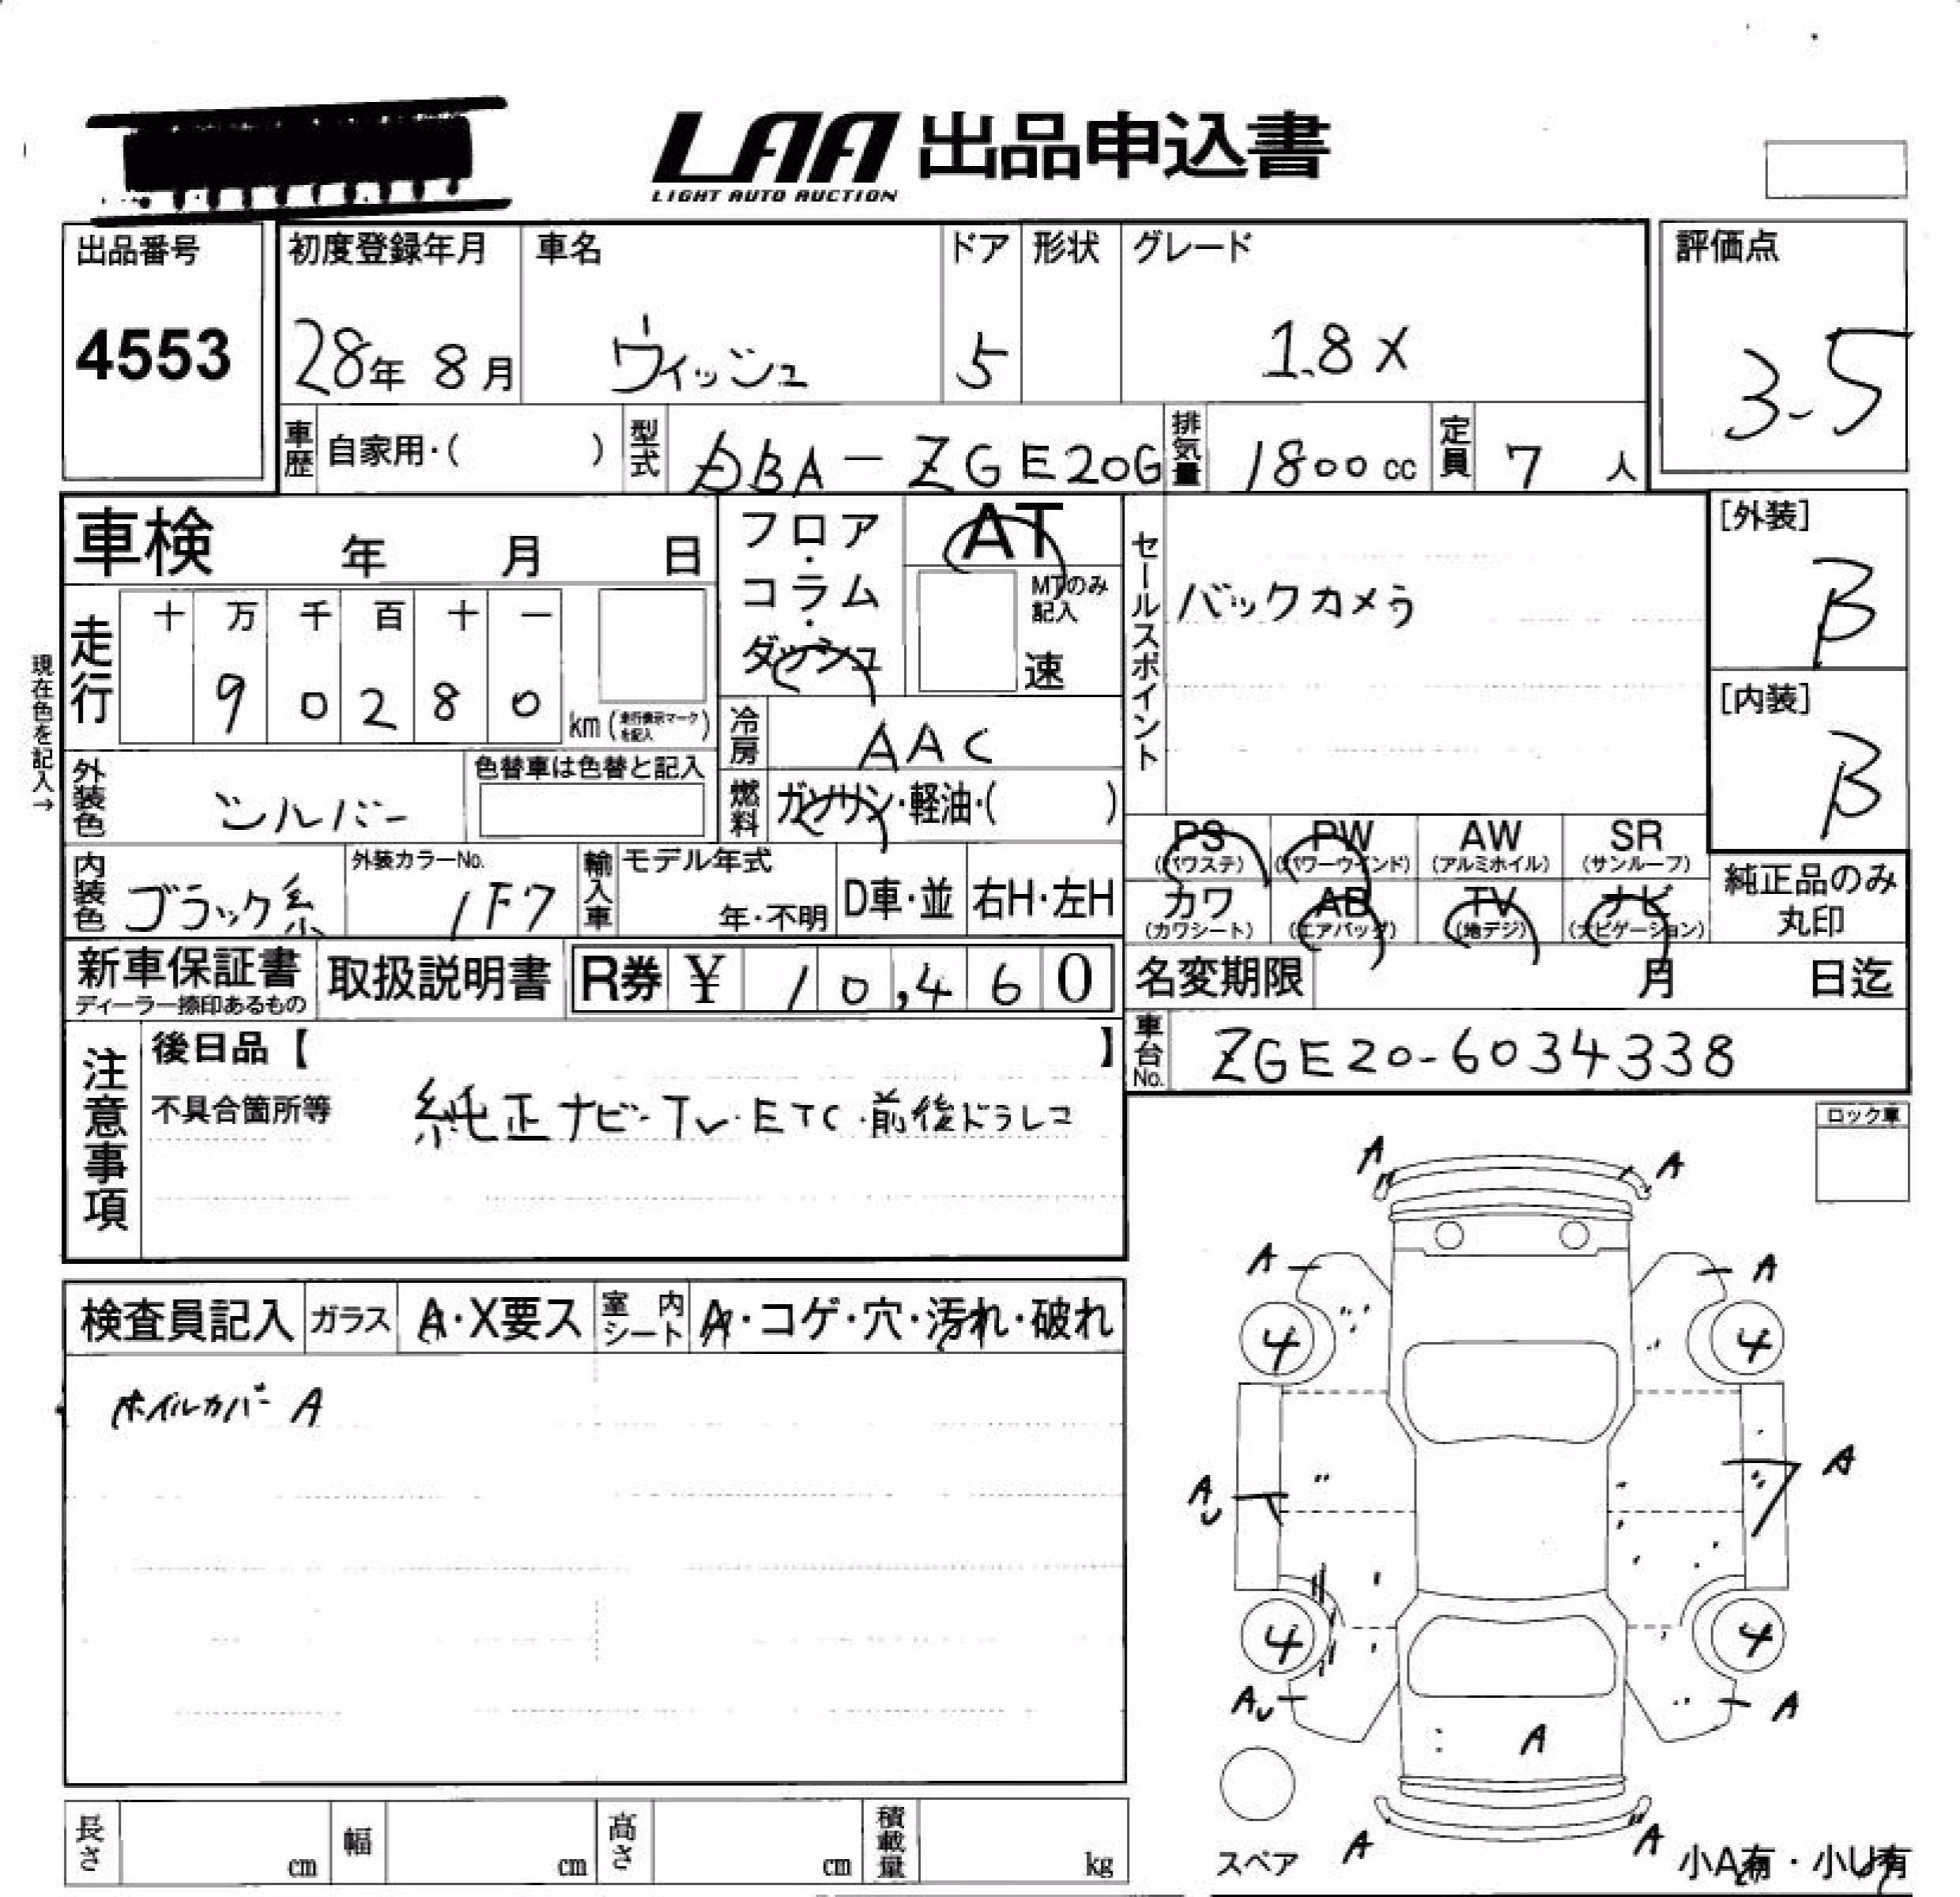 LAA 出品申込書
LIGHT AUTO AUCTION
出品番号
4553
初度登録年月
28年 8月
車名
ウィッシュ
ドア
5
形状
グレード
1.8X
評価点
3.5
車歴
自家用・( )
型式
DBA-ZGE20G
排気量
1800 cc
定員
7 人
車検 年 月 日
フロア・コラム・ダッシュ
AT
MTのみ記入
速
セールスポイント
バックカメラ
[外装]
B
[内装]
B
現在色を記入→
走行
十 万 千 百 十 一
9 0 2 8 0
km (走行表示マークを記入)
冷房
AAC
外装色
シルバー
色替車は色替と記入
燃料
ガソリン・軽油・( )
PS
(パワステ)
PW
(パワーウインド)
AW
(アルミホイル)
SR
(サンルーフ)
内装色
ブラック系
外装カラーNo.
1F7
輸入車
モデル年式
年・不明
D車・並
右H・左H
カワ
(カワシート)
AB
(エアバッグ)
TV
(地デジ)
ナビ
(ナビゲーション)
純正品のみ
丸印
新車保証書
ディーラー捺印あるもの
取扱説明書
R券 ¥ 10,460
名変期限 月 日迄
車台No.
ZGE20-6034338
注意事項
後日品【 】
不具合箇所等
純正ナビ・TV・ETC・前後ドラレコ
ロック車
検査員記入
ガラス
A・X要ス
室内シート
A・コゲ・穴・汚れ・破れ
ホイルカバー A
A A
A A
4 4
A
AU
4 4
AU A
A
A A
スペア
小A有・小U有
長さ cm
幅 cm
高さ cm
積載量 kg